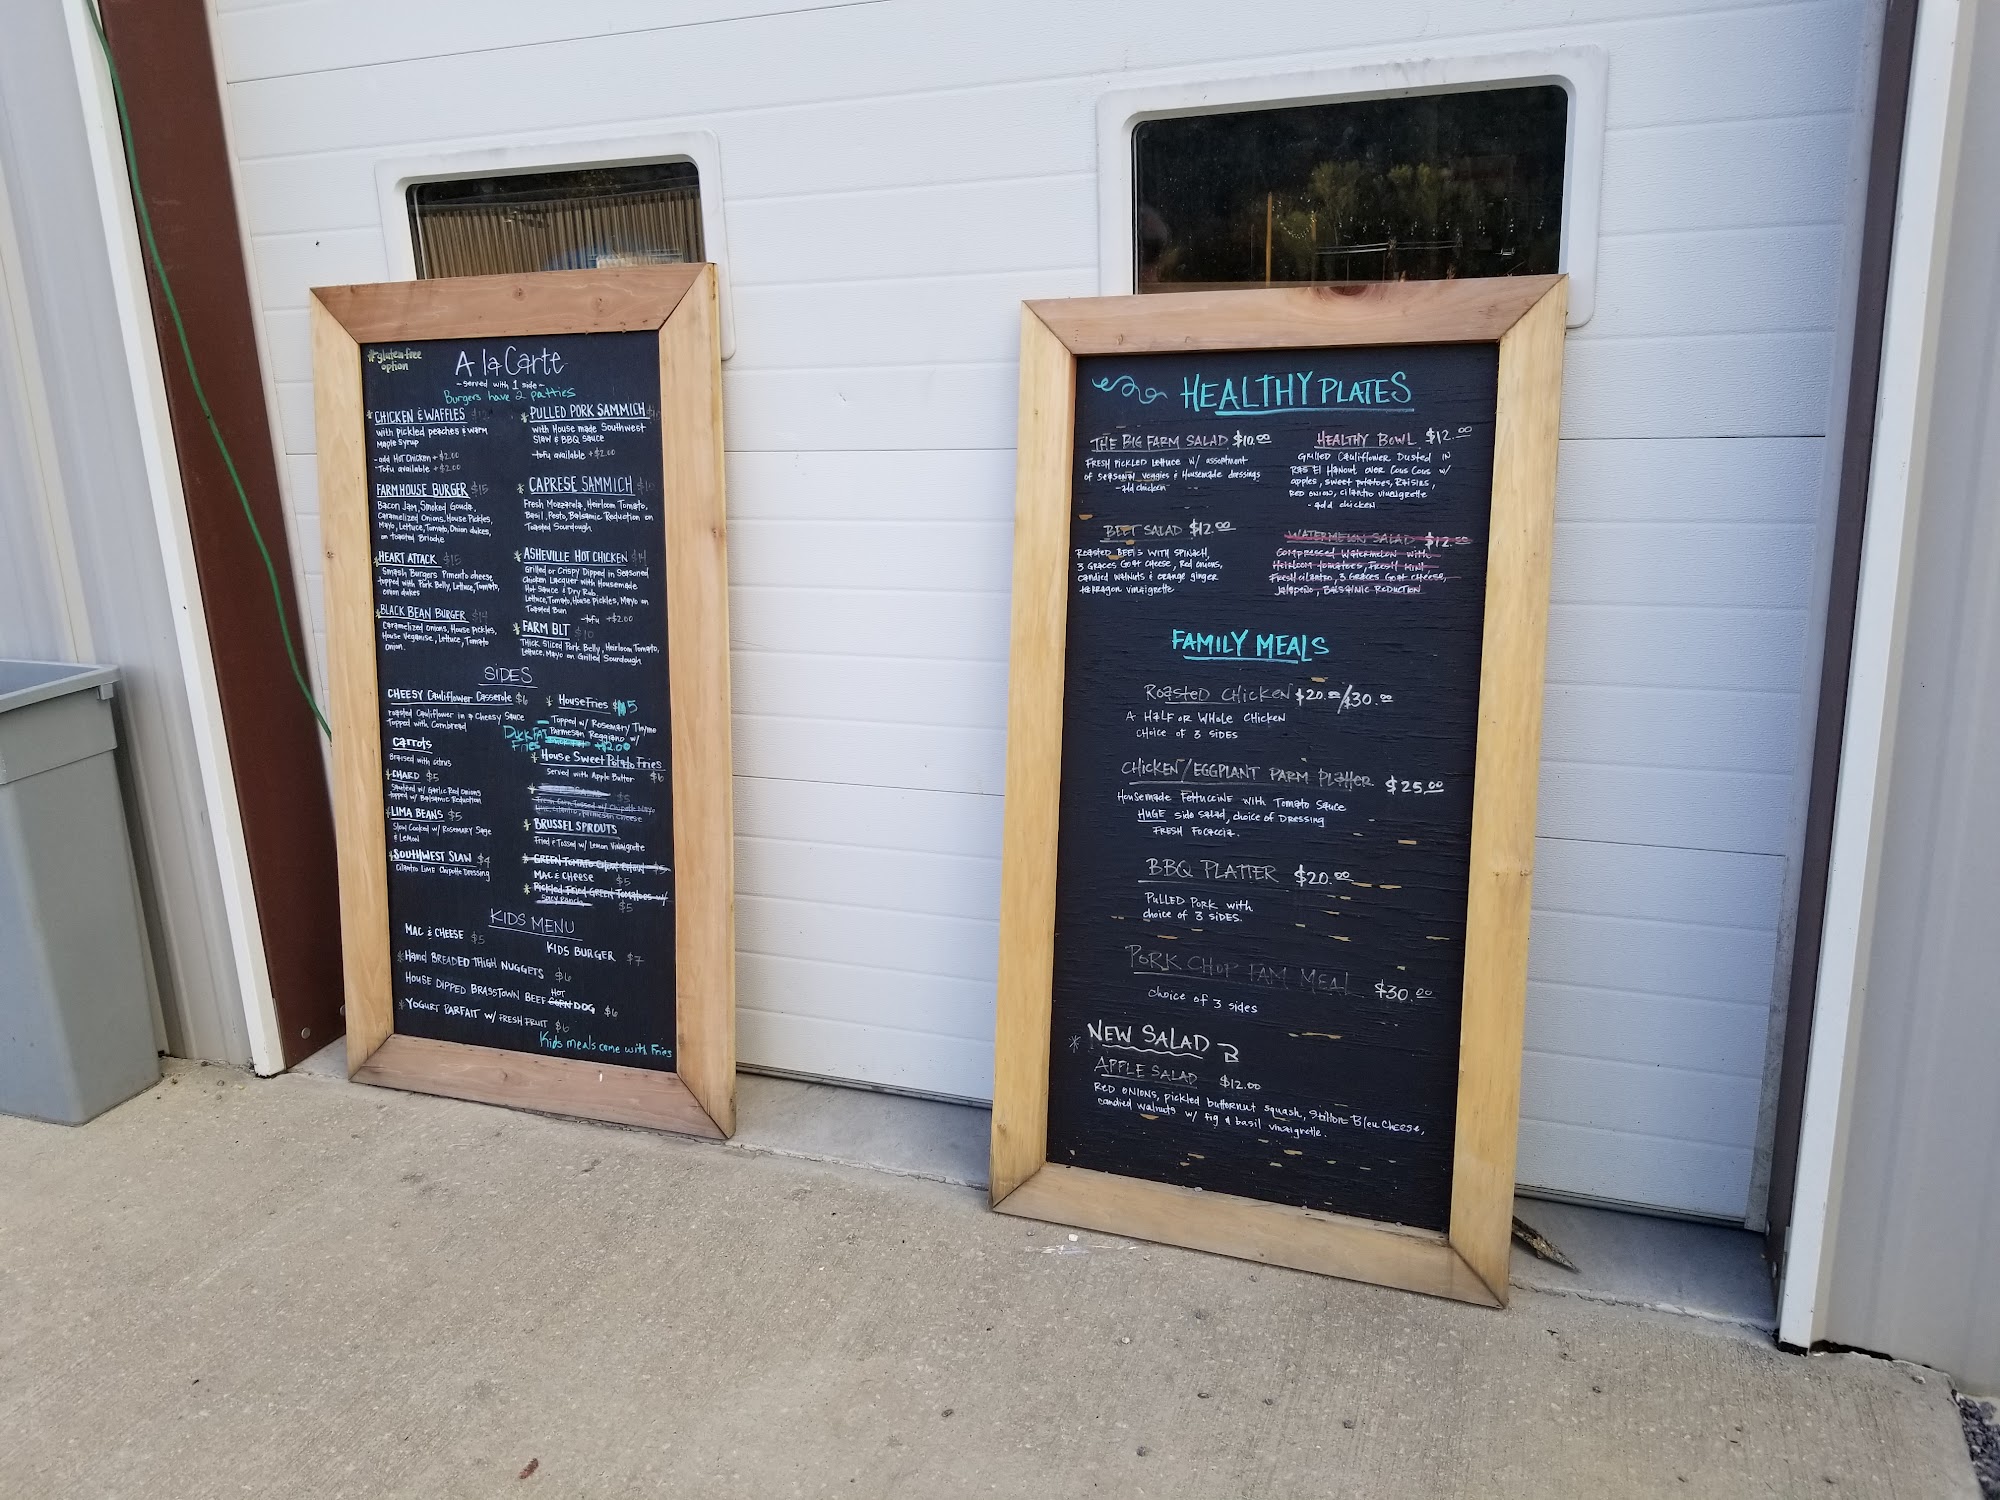 *gluten-free
option
A la Carte
~served with 1 side~
Burgers have 2 patties
* CHICKEN & WAFFLES $12
with pickled peaches & warm
Maple Syrup
-add Hot Chicken +$2.00
-Tofu available +$2.00
FARMHOUSE BURGER $15
Bacon Jam, Smoked Gouda,
Caramelized Onions, House Pickles,
Mayo, Lettuce, Tomato, Onion dukes,
on toasted Brioche
*HEART ATTACK $15
Smash Burgers Pimento cheese,
topped with Pork Belly, Lettuce, Tomato,
onion dukes
*BLACK BEAN BURGER $14
Caramelized onions, House Pickles,
House Veganise, Lettuce, Tomato
Onion.
* PULLED PORK SAMMICH
with House made Southwest
Slaw & BBQ sauce
-tofu available +$2.00
* CAPRESE SAMMICH
Fresh Mozzarela, Heirloom Tomato,
Basil Pesto, Balsamic Reduction on
Toasted Sourdough
* ASHEVILLE HOT CHICKEN $14
Grilled or Crispy Dipped in Seasoned
Chicken Lacquer with Housemade
Hot Sauce & Dry Rub.
Lettuce, Tomato, House Pickles, Mayo on
Toasted Bun
-tofu +$2.00
* FARM BLT $10
Thick Sliced Pork Belly, Heirloom Tomato,
Lettuce, Mayo on Grilled Sourdough
SIDES
CHEESY Cauliflower Casserole $6
roasted Cauliflower in a Cheesy Sauce
Topped with Cornbread
Carrots
Braised with citrus
*CHARD $5
Sauteed w/ Garlic Red Onions
topped w/ Balsamic Reduction
*LIMA BEANS $5
Slow Cooked w/ Rosemary Sage
& Lemon
*SOUTHWEST SLAW $4
Cilantro LIME Chipotle Dressing
* House Fries $5
Topped w/ Rosemary Thyme
Parmesan Reggiano w/
Duck FAT
Fries +$2.00
* House Sweet Potato Fries
Served with Apple Butter $6
$5
Fresh Corn Tossed w/ Chipotle Mayo
Lime, cilantro, parmesan cheese
* BRUSSEL SPROUTS
Fried & Tossed w/ Lemon Vinaigrette
* GREEN TOMATO Chow $5
MAC & CHEESE $5
* Pickled Fried Green Tomatoes w/
Spicy Ranch $5
KIDS MENU
MAC & CHEESE $5
KIDS BURGER $7
*Hand BREADED THIGH NUGGETS $6
HOUSE DIPPED BRASSTOWN BEEF CORN DOG $6
HOT
*YOGURT PARFAIT W/ FRESH FRUIT $6
Kids meals come with Fries
HEALTHY PLATES
THE BIG FARM SALAD $10.00
FRESH PICKLED Lettuce W/ assortment
of seasonal veggies & Housemade dressings
-add chicken
HEALTHY BOWL $12.00
GRILLED Cauliflower Dusted IN
Ras El Hanout over Cous Cous w/
apples, sweet potatoes, Raisins,
RED ONION, cilantro vinaigrette
- add chicken
BEET SALAD $12.00
Roasted BEETS WITH SPINACH,
3 GRACES Goat Cheese, Red onions,
candied walnuts & orange ginger
tarragon vinaigrette
WATERMELON SALAD $12.00
Compressed Watermelon with
Heirloom tomatoes, Fresh Mint
Fresh cilantro, 3 GRACES Goat cheese,
Jalapeño, BALSAMIC REDUCTION
FAMILY MEALS
ROASTED CHICKEN $20.00/$30.00
A HALF OR WHOLE CHICKEN
CHOICE OF 3 SIDES
CHICKEN/EGGPLANT PARM PLATTER $25.00
Housemade Fettuccine With Tomato Sauce
HUGE side salad, choice of Dressing
FRESH FOCACCIA.
BBQ PLATTER $20.00
PULLED PORK with
choice of 3 SIDES.
PORK CHOP FAM MEAL $30.00
choice of 3 sides
* NEW SALAD
APPLE SALAD $12.00
RED ONIONS, pickled butternut squash, Stilton Bleu Cheese,
candied walnuts w/ fig & basil vinaigrette.